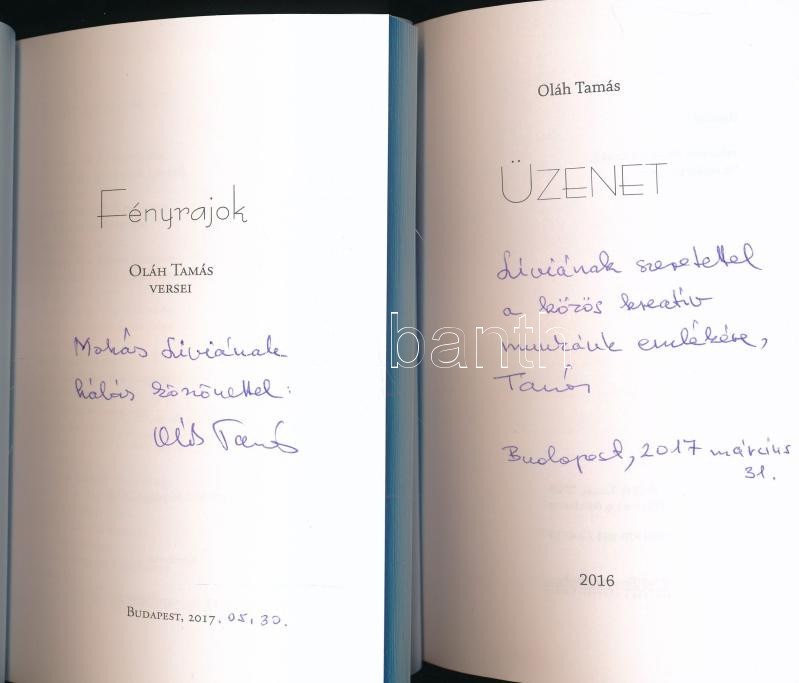 Fényrajok
OLÁH TAMÁS
VERSEI
Mohás Liviának
hálás köszönettel:
Oláh Tamás
BUDAPEST, 2017. 05. 30.
Oláh Tamás
ÜZENET
Liviának szeretettel
a közös kreatív
munkánk emlékére,
Tamás
Budapest, 2017 március
31.
2016
banth